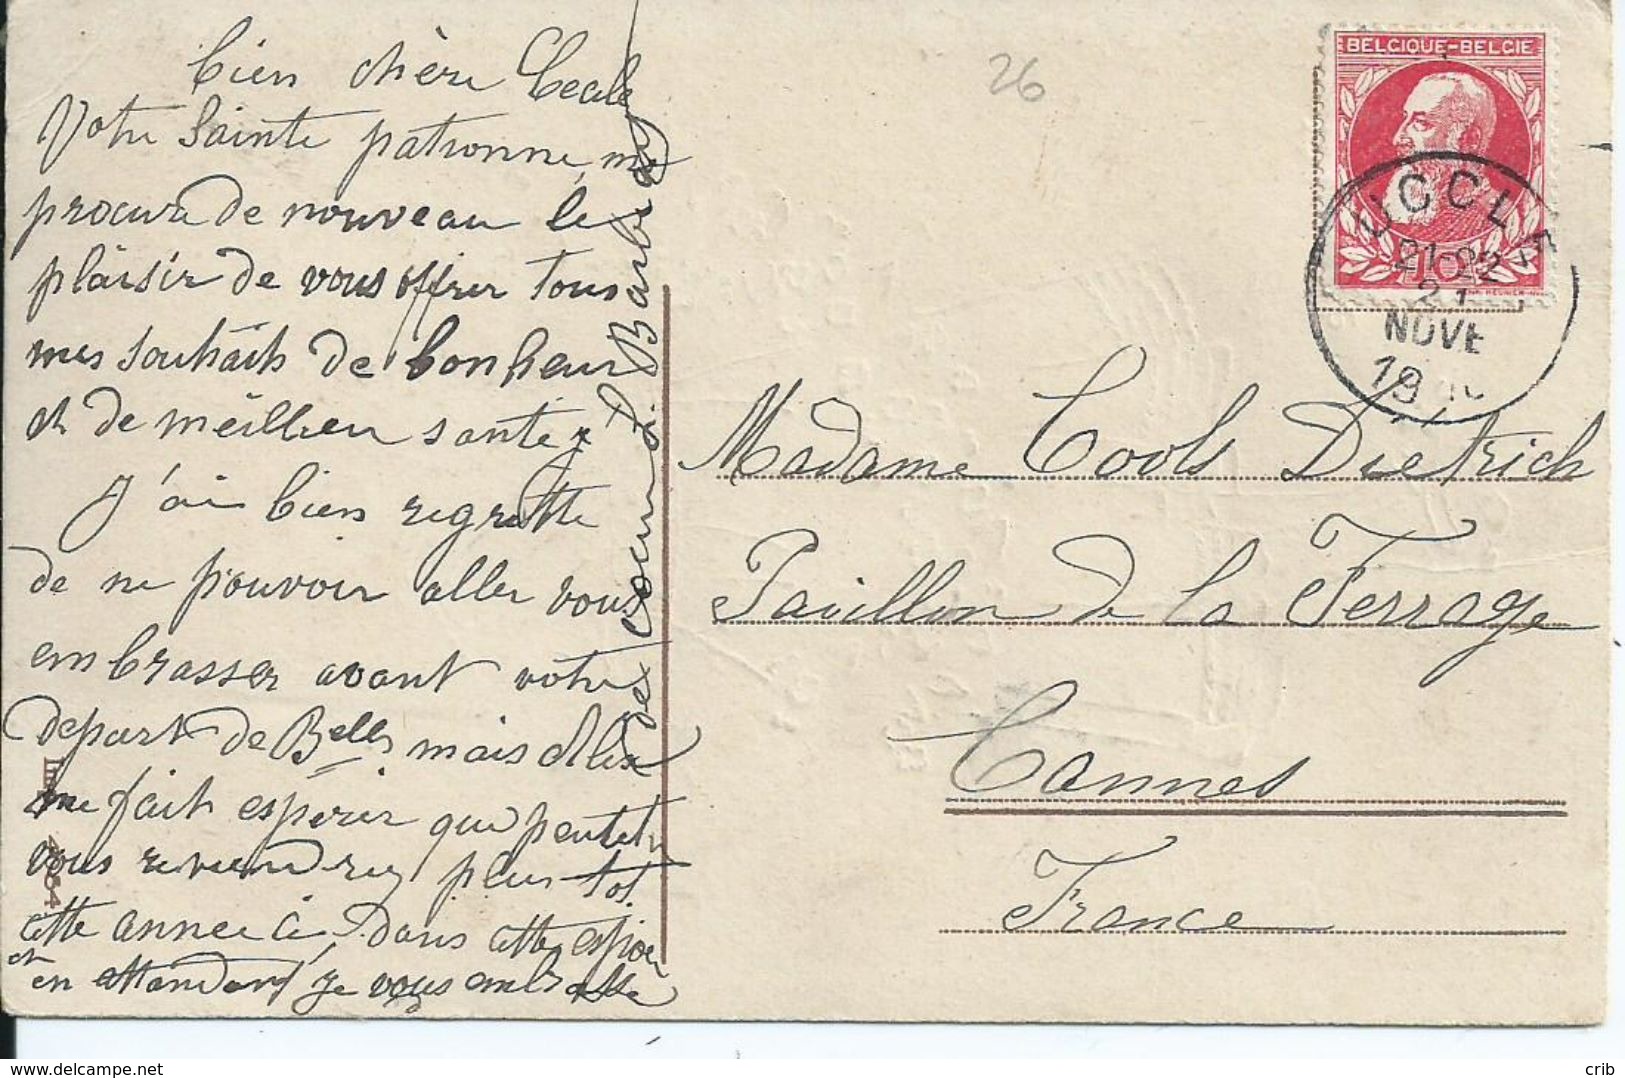 bien chère Cecile
Votre Sainte patronne, me
procure de nouveau le
plaisir de vous offrir tous
mes souhaits de bonheur
et de meilleur santé.
J'ai bien regretté
de ne pouvoir aller vous
embrasser avant votre
depart de Belle, mais Alix
me fait espérer que peutetre
vous reviendrez plus tot
cette année ci. Dans cette espoir
et
en attendant je vous embrasse
de coeur
26
BELGIQUE-BELGIE
10
UCCLE
21-22
21
NOVE
19
Madame Cools Dietrich
Pavillon de la Ferrage
Cannes
France
crib